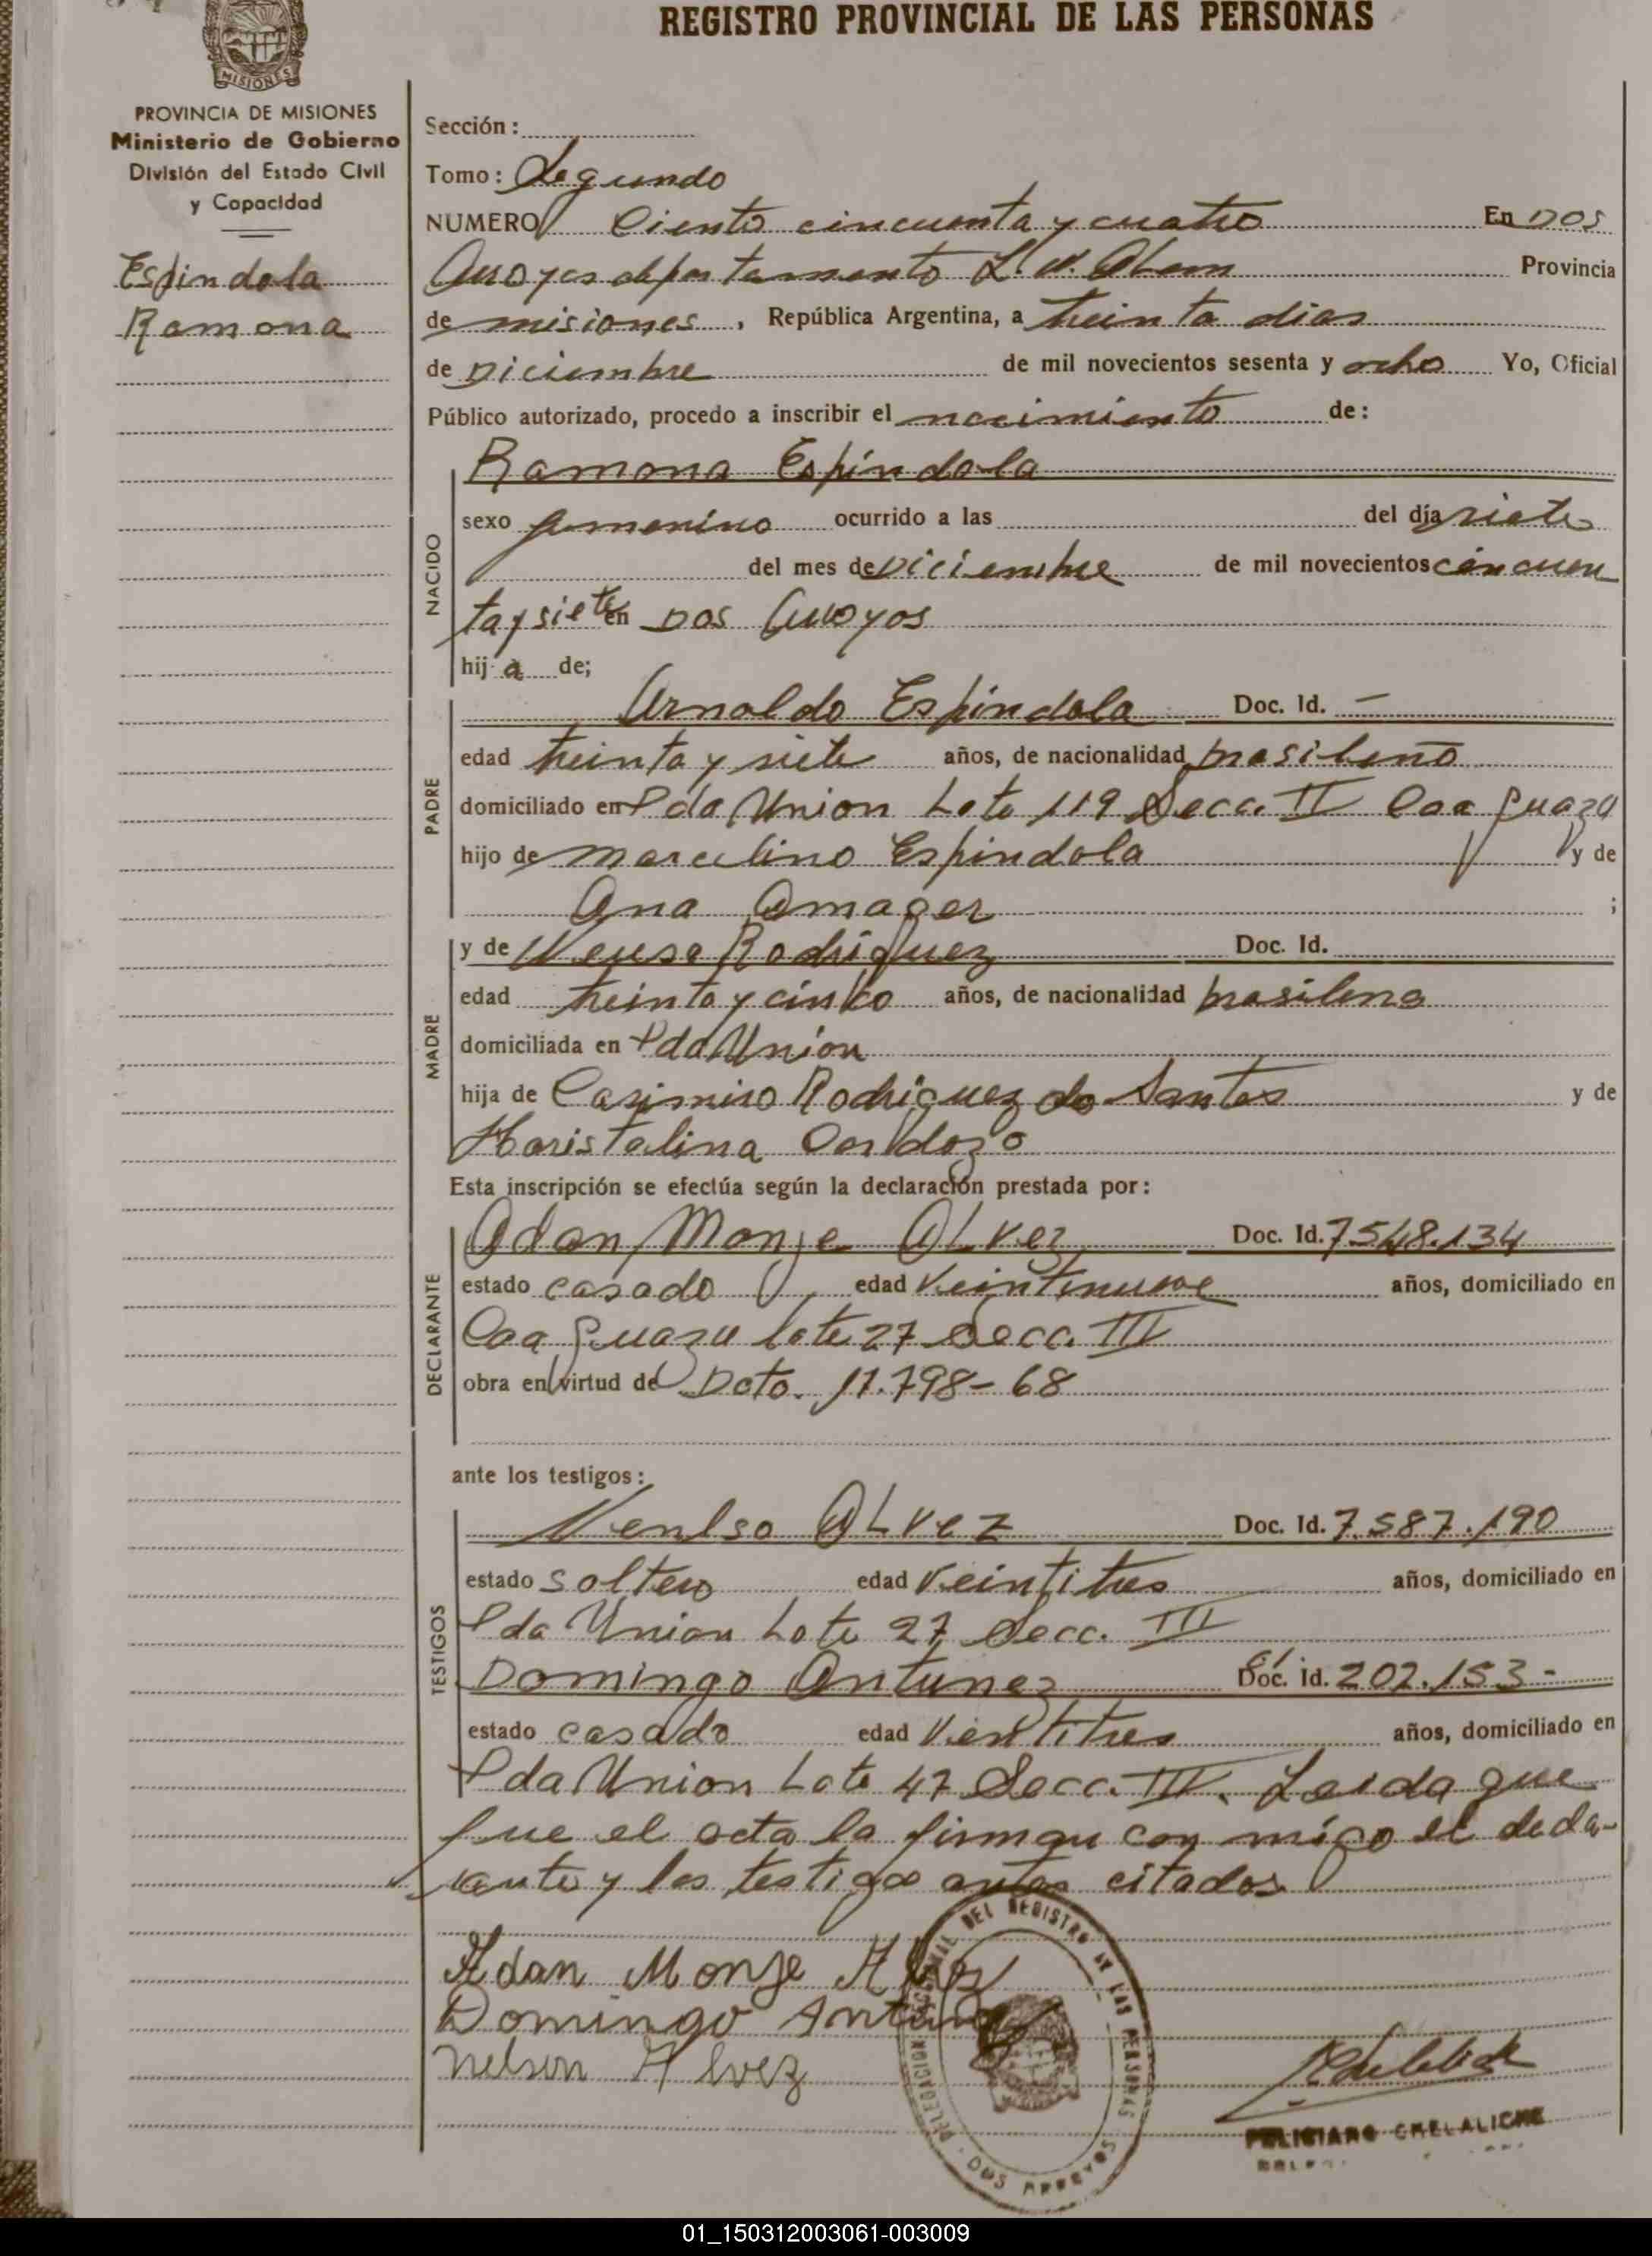 REGISTRO PROVINCIAL DE LAS PERSONAS
MISIONES
PROVINCIA DE MISIONES
Ministerio de Gobierno
División del Estado Civil
y Capacidad
Espindola
Ramona
Sección:
Tomo: Segundo
NUMERO Ciento cincuenta y cuatro En DOS
Arroyos departamento L. N. Alem Provincia
de misiones, República Argentina, a treinta dias
de Diciembre de mil novecientos sesenta y ocho Yo, Oficial
Público autorizado, procedo a inscribir el nacimiento de:
NACIDO
Ramona Espíndola
sexo femenino ocurrido a las del día siete
del mes de Diciembre de mil novecientos cincuen
ta y siete en DOS Arroyos
hija de;
PADRE
Arnoldo Espíndola Doc. Id. —
edad treinta y siete años, de nacionalidad brasileño
domiciliado en Pda Union Lote 119 Secc. II Caa Guazu
hijo de marcelino Espindola y de
Ana Amager ;
MADRE
y de Neusa Rodriguez Doc. Id.
edad treinta y cinko años, de nacionalidad brasilena
domiciliada en Pda Union
hija de Casimiro Rodriguez do Santos y de
Maristelina Cardozo
Esta inscripción se efectúa según la declaración prestada por:
DECLARANTE
Adan Monje ALvez Doc. Id. 7548.134
estado casado edad veintinueve años, domiciliado en
Caa Guazu lote 27 Secc. III
obra en virtud de Dcto. 11.798-68
ante los testigos:
TESTIGOS
Nenlso ALvez Doc. Id. 7.587.190
estado soltero edad veintitres años, domiciliado en
Pda Union Lote 27 Secc. III
Domingo Antunez Doc. Id. 202.153-
estado casado edad vientitres años, domiciliado en
Pda Union Lote 47 Secc. III. Leida que
fue el acta la firman con migo el decla-
rante y los testigos antes citados
Adan Monje Alvez
Domingo Antunez
nelson Alvez
DELEGACION SECCIONAL DEL REGISTRO DE LAS PERSONAS
DOS ARROYOS
FELICIANO CHELALICHE
01_150312003061-003009